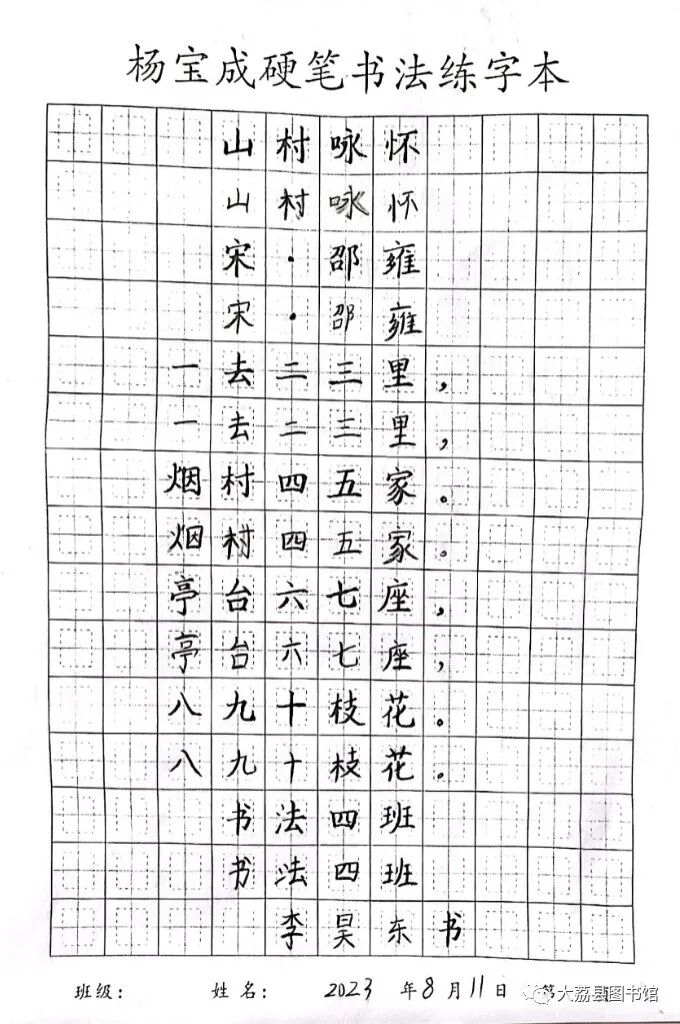 杨宝成硬笔书法练字本
山村咏怀
山村咏怀
宋·邵雍
宋·邵雍
一去二三里，
一去二三里，
烟村四五家。
烟村四五家。
亭台六七座，
亭台六七座，
八九十枝花。
八九十枝花。
书法四班
书法四班
李昊东书
班级： 姓名： 2023 年 8 月 11 日 第
大荔县图书馆